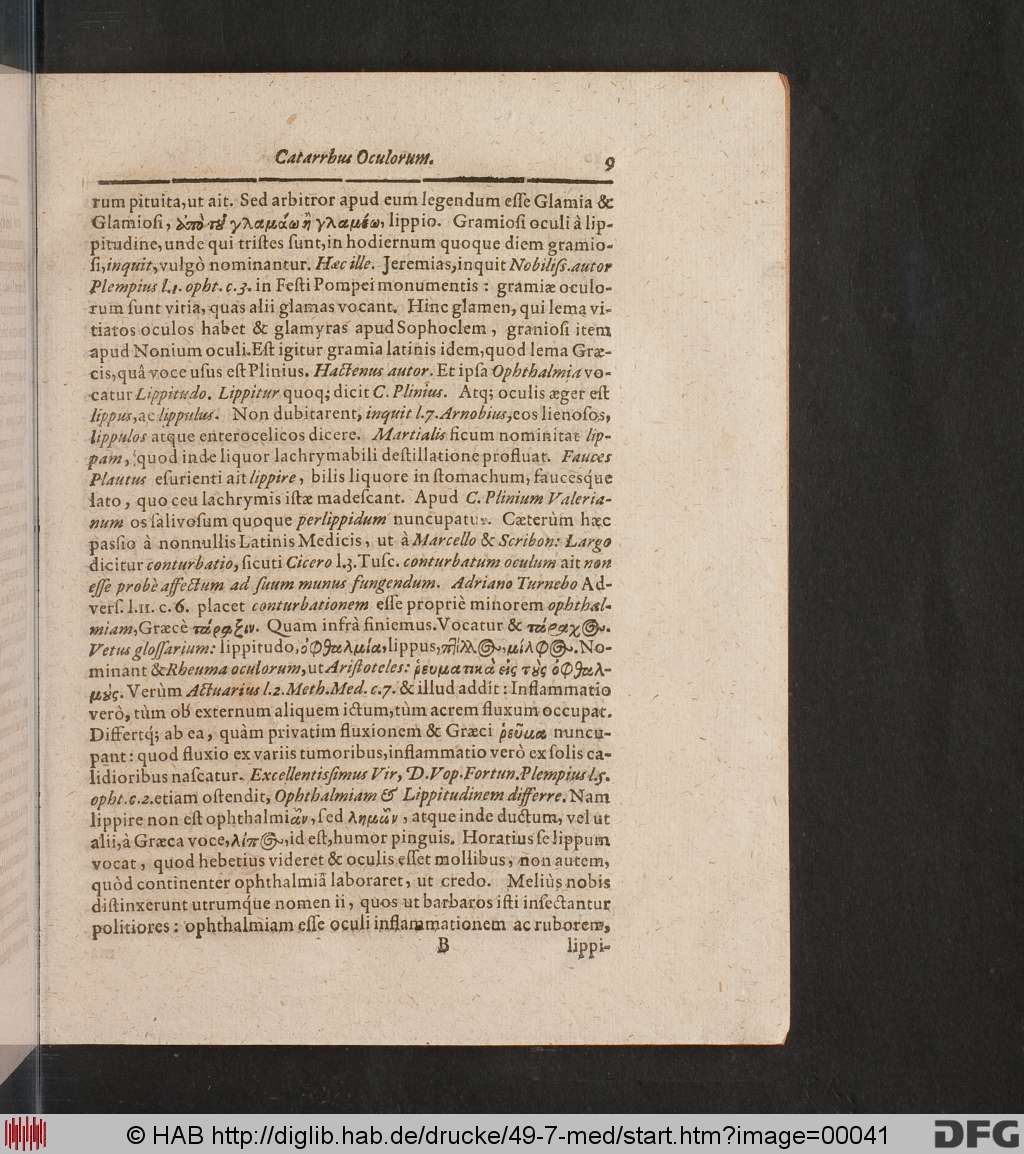 Catarrhus Oculorum. 9
rum pituita, ut ait. Sed arbitror apud eum legendum eſſe Glamia &
Glamioſi, ἀπὸ τοῦ γλαμάω ἢ γλαμέω, lippio. Gramioſi oculi â lip-
pitudine, unde qui triſtes ſunt, in hodiernum quoque diem gramio-
ſi, inquit, vulgò nominantur. Hæc ille. Jeremias, inquit Nobiliſs. autor
Plempius l.1. opht. c.3. in Feſti Pompei monumentis : gramiæ oculo-
rum ſunt vitia, quas alii glamas vocant. Hinc glamen, qui lema vi-
tiatos oculos habet & glamyras apud Sophoclem, granioſi item
apud Nonium oculi. Eſt igitur gramia latinis idem, quod lema Græ-
cis, quâ voce uſus eſt Plinius. Hactenus autor. Et ipſa Ophthalmia vo-
catur Lippitudo. Lippitur quoq; dicit C. Plinius. Atq; oculis æger eſt
lippus, ac lippulus. Non dubitarent, inquit l.7. Arnobius, eos lienoſos,
lippulos atque enterocelicos dicere. Martialis ficum nominitat lip-
pam, quod inde liquor lachrymabili deſtillatione profluat. Fauces
Plautus eſurienti ait lippire, bilis liquore in ſtomachum, fauceſque
lato, quo ceu lachrymis iſtæ madeſcant. Apud C. Plinium Valeria-
num os ſalivoſum quoque perlippidum nuncupatur. Cæterùm hæc
paſſio à nonnullis Latinis Medicis, ut à Marcello & Scribon: Largo
dicitur conturbatio, ſicuti Cicero l.3. Tuſc. conturbatum oculum ait non
eſſe probè affectum ad ſuum munus fungendum. Adriano Turnebo Ad-
verſ. l.11. c.6. placet conturbationem eſſe propriè minorem ophthal-
miam, Græcè τάραξιν. Quam infrà finiemus. Vocatur & τάραχος.
Vetus gloſſarium: lippitudo, ὀφθαλμία, lippus, πτίλλος, μίλφος. No-
minant & Rheuma oculorum, ut Ariſtoteles: ῥευματικὰ εἰς τοὺς ὀφθαλ-
μούς. Verùm Actuarius l.2. Meth. Med. c.7. & illud addit : Inflammatio
verò, tùm ob externum aliquem ictum, tùm acrem fluxum occupat.
Differtq́; ab ea, quàm privatim fluxionem & Græci ῥεῦμα nuncu-
pant : quod fluxio ex variis tumoribus, inflammatio verò ex ſolis ca-
lidioribus naſcatur. Excellentiſſimus Vir, D. Vop. Fortun. Plempius l.5.
opht. c.2. etiam oſtendit, Ophthalmiam & Lippitudinem differre. Nam
lippire non eſt ophthalmiᾶν, ſed λημᾶν, atque inde ductum, vel ut
alii, à Græca voce, λίπος, id eſt, humor pinguis. Horatius ſe lippum
vocat, quod hebetius videret & oculis eſſet mollibus, non autem,
quòd continenter ophthalmiâ laboraret, ut credo. Meliùs nobis
diſtinxerunt utrumque nomen ii, quos ut barbaros iſti inſectantur
politiores : ophthalmiam eſſe oculi inflammationem ac ruborem,
B lippi-
© HAB http://diglib.hab.de/drucke/49-7-med/start.htm?image=00041 DFG